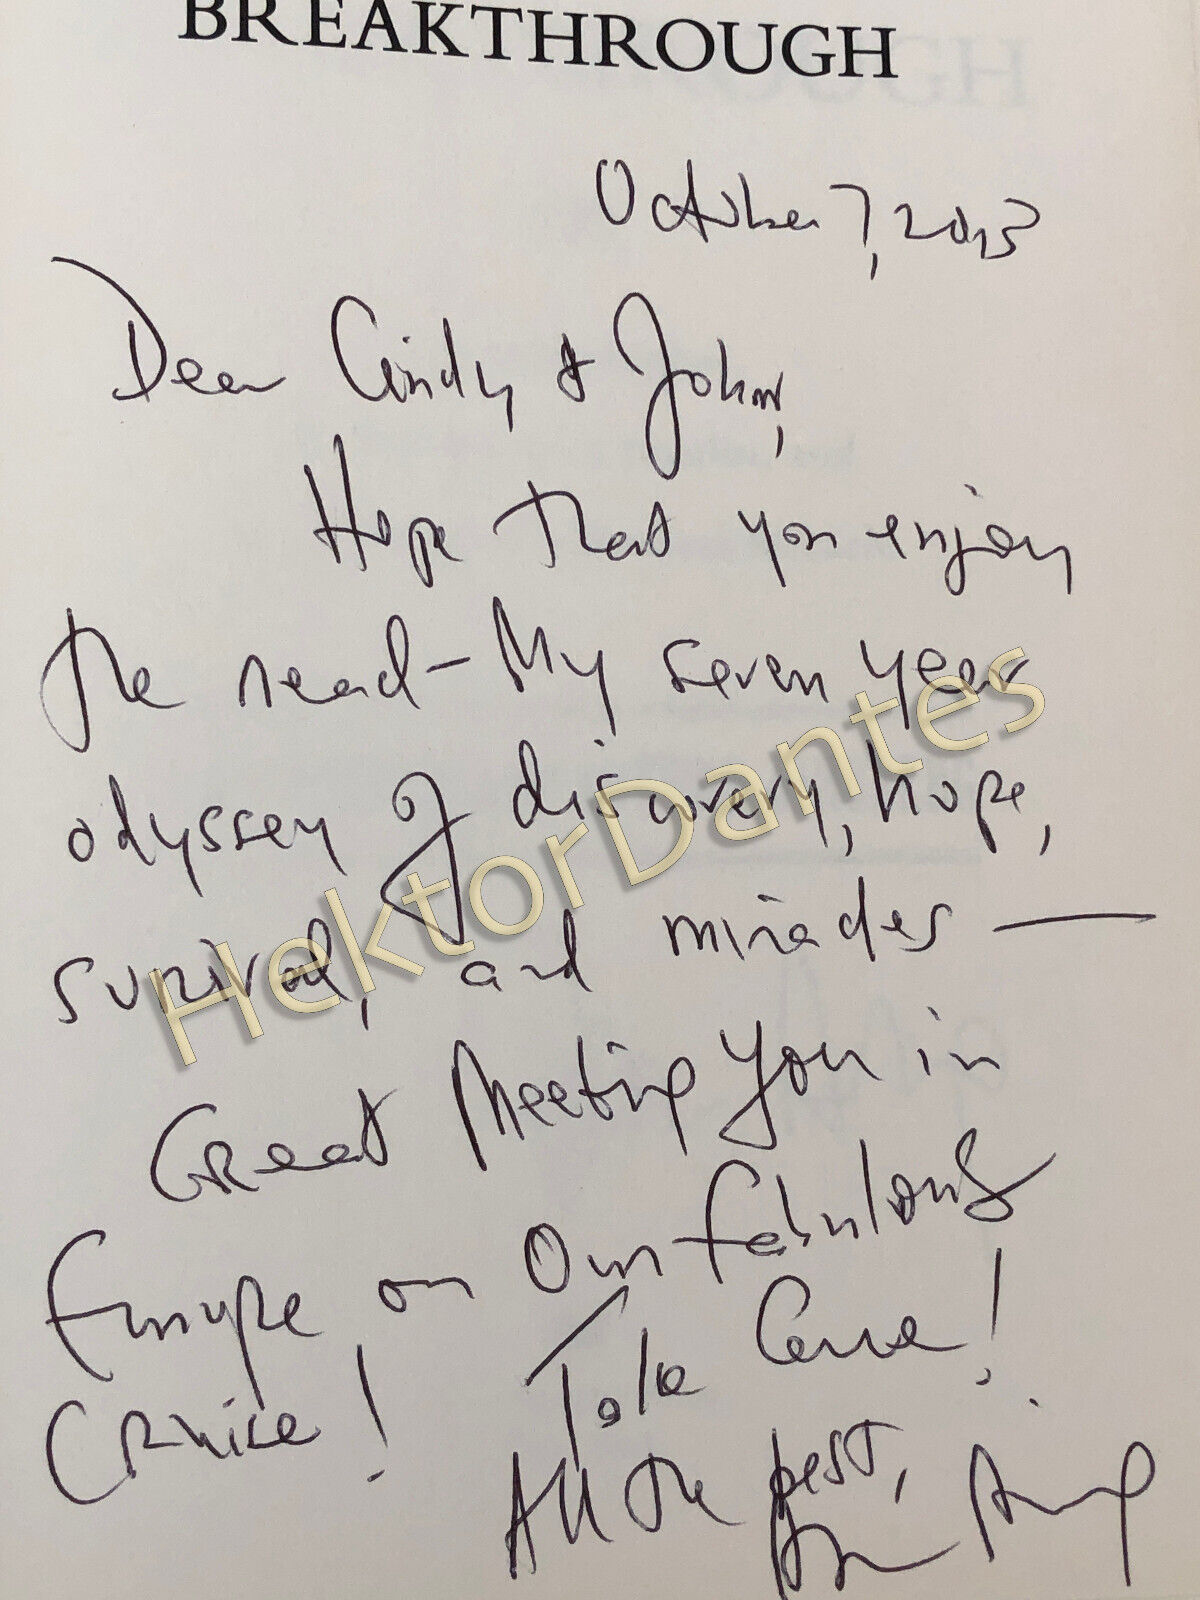 BREAKTHROUGH
October 7, 2013
Dear Cindy & John,
Hope that you enjoy
the read - My seven year
odyssey of discovery, hope,
survival, and miracles —
Great Meeting you in
Europe on our fabulous
Cruise! Take Care!
All the best,
HektorDantes